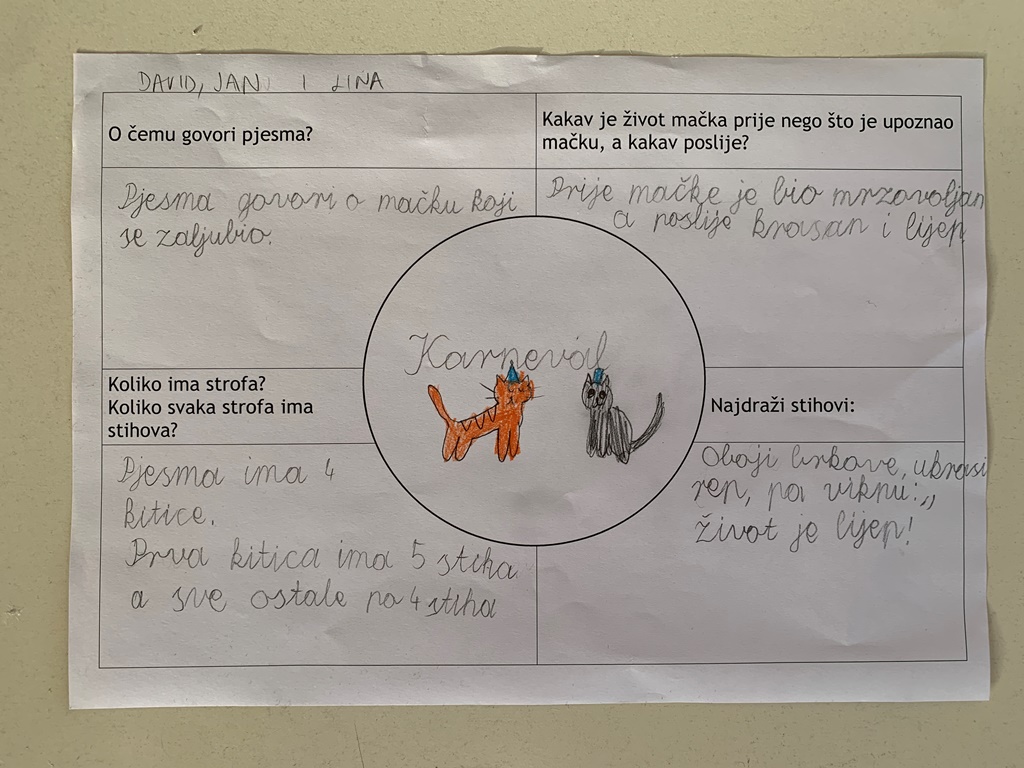 DAVID, JAN I LINA
O čemu govori pjesma?
Kakav je život mačka prije nego što je upoznao
mačku, a kakav poslije?
Pjesma govori o mačku koji
se zaljubio.
Prije mačke je bio mrzovoljan
a poslije krasan i lijep
Karneval
Koliko ima strofa?
Koliko svaka strofa ima
stihova?
Najdraži stihovi:
Pjesma ima 4
kitice.
Prva kitica ima 5 stiha
a sve ostale po 4 stiha
Oboji brkove, ukrasi
rep, pa viknu:„
život je lijep!